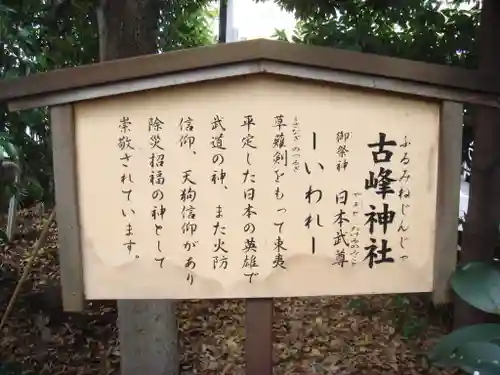 古峰神社
ふるみねじんじゃ
御祭神 日本武尊
やまとたけるのみこと
―いわれ―
草薙剣をもって東夷
くさなぎ のつるぎ
平定した日本の英雄で
武道の神、また火防
信仰、天狗信仰があり
除災招福の神として
崇敬されています。